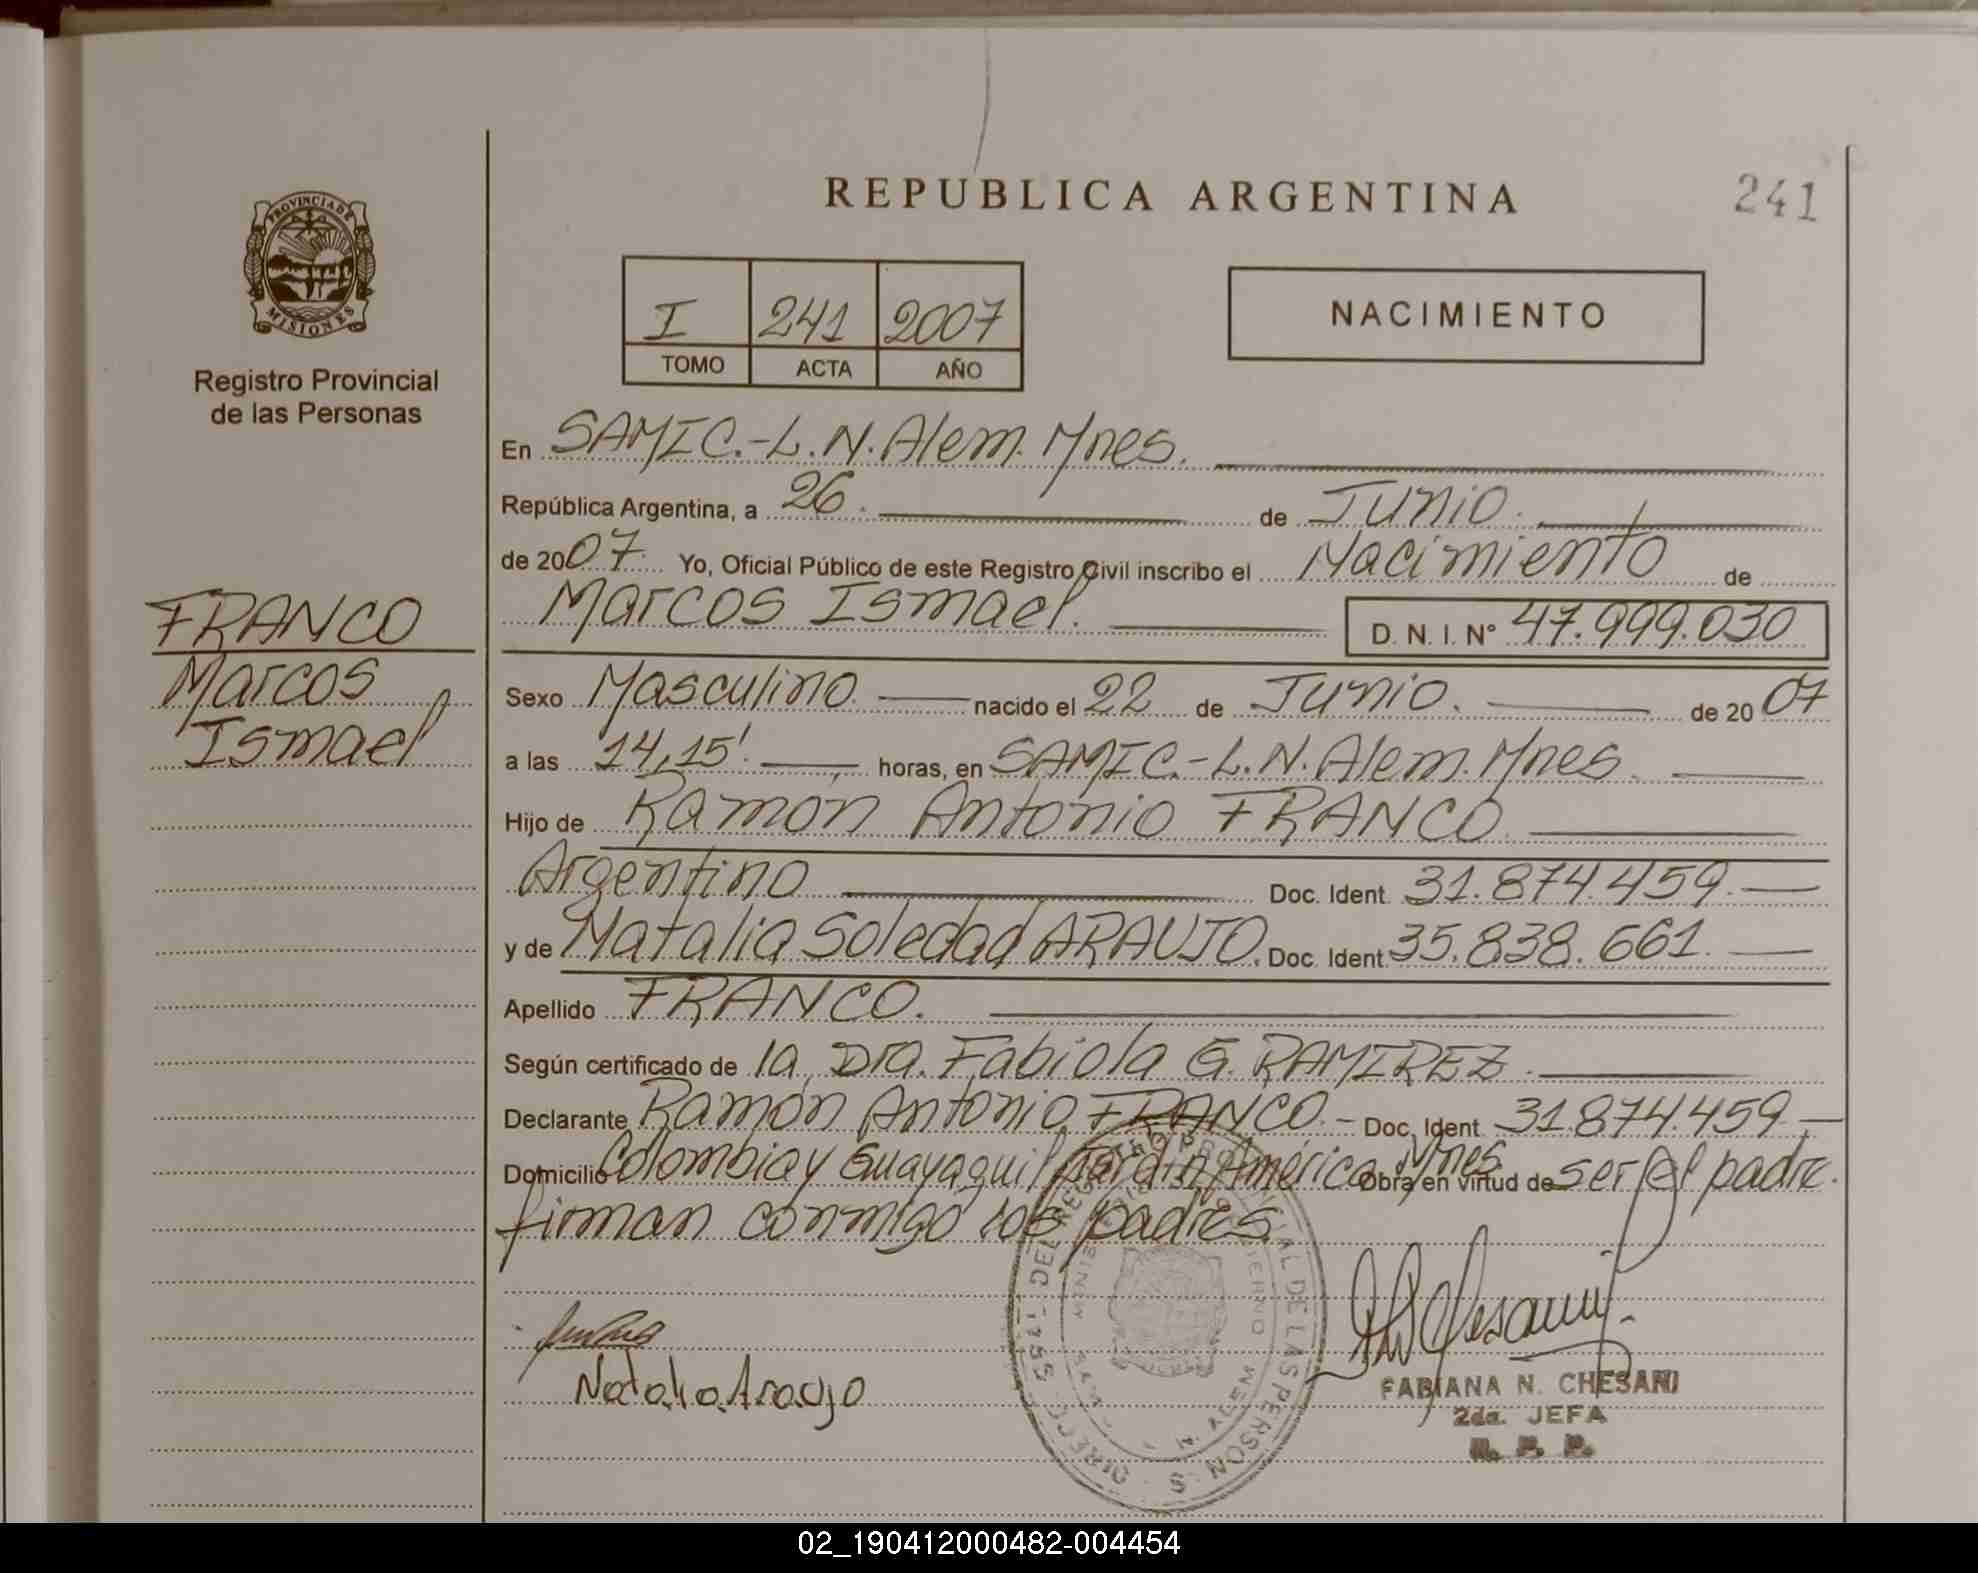 REPUBLICA ARGENTINA
241
PROVINCIA DE
MISIONES
Registro Provincial
de las Personas
I 241 2007
TOMO ACTA AÑO
NACIMIENTO
En SAMIC.-L.N.Alem.Mnes.
República Argentina, a 26. de Junio.
de 2007. Yo, Oficial Público de este Registro Civil inscribo el Nacimiento de
Marcos Ismael. D. N. I. N° 47.999.030
FRANCO
Marcos
Ismael
Sexo Masculino. nacido el 22 de Junio. de 2007
a las 14,15'. horas, en SAMIC.-L.N.Alem.Mnes.
Hijo de Ramón Antonio FRANCO.
Argentino Doc. Ident. 31.874.459.
y de Natalia Soledad ARAUJO. Doc. Ident. 35.838.661.
Apellido FRANCO.
Según certificado de la Dra. Fabiola G. RAMIREZ.
Declarante Ramón Antonio FRANCO.- Doc. Ident. 31874.459
Domicilio Colombia y Guayaquil Jardín América Mnes. Obra en virtud de ser el padre.
firman conmigo los padres.
Natalia Araujo
FABIANA N. CHESANI
2da. JEFA
R. P. P.
02_190412000482-004454